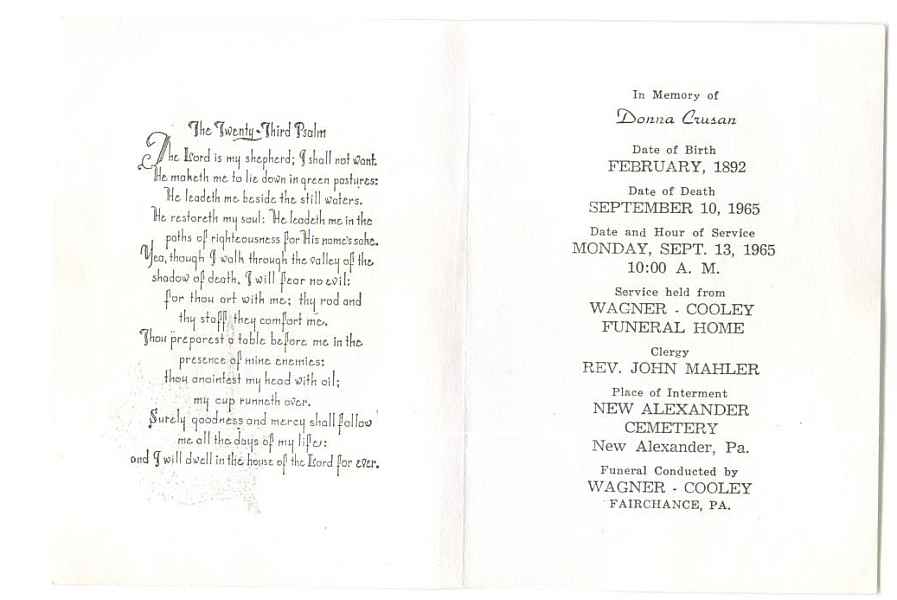 The Twenty-Third Psalm
The Lord is my shepherd; I shall not want.
He maketh me to lie down in green pastures:
He leadeth me beside the still waters.
He restoreth my soul: He leadeth me in the
paths of righteousness for His name's sake.
Yea, though I walk through the valley of the
shadow of death, I will fear no evil:
for thou art with me; thy rod and
thy staff they comfort me.
Thou preparest a table before me in the
presence of mine enemies:
thou anointest my head with oil;
my cup runneth over.
Surely goodness and mercy shall follow
me all the days of my life:
and I will dwell in the house of the Lord for ever.
In Memory of
Donna Crusan
Date of Birth
FEBRUARY, 1892
Date of Death
SEPTEMBER 10, 1965
Date and Hour of Service
MONDAY, SEPT. 13, 1965
10:00 A. M.
Service held from
WAGNER - COOLEY
FUNERAL HOME
Clergy
REV. JOHN MAHLER
Place of Interment
NEW ALEXANDER
CEMETERY
New Alexander, Pa.
Funeral Conducted by
WAGNER - COOLEY
FAIRCHANCE, PA.